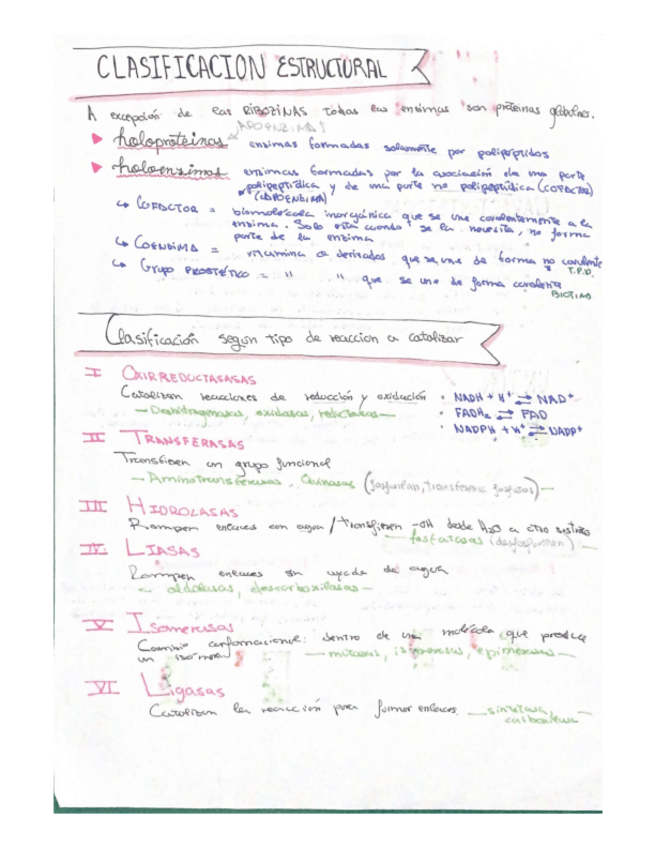 CLASIFICACION ESTRUCTURAL
A excepción de las RIBOZIMAS todas las enzimas son proteínas globulares.
(APOENZIMAS)
holoproteinas enzimas formadas solamente por polipeptidos
holoenzimas enzimas formadas por la asociación de una parte
polipeptidica y de una parte no polipeptidica (COFACTOR)
(APOENZIMA)
↳ COFACTOR = biomolécula inorgánica que se une covalentemente a la
enzima. Solo está cuando se la necesita, no forma
parte de la enzima
↳ COENZIMA = vitamina o derivados que se une de forma no covalente
T.P.P.
↳ Grupo PROSTÉTICO = " " que se une de forma covalente
BIOTINA
Clasificación segun tipo de reaccion a catalizar
I OXIRREDUCTASAS
Catalizan reacciones de reducción y oxidación • NADH + H⁺ ⇌ NAD⁺
— Deshidrogenasas, oxidasas, reductasas — • FADH₂ ⇌ FAD
• NADPH + H⁺ ⇌ NADP⁺
II TRANSFERASAS
Transfieren un grupo funcional
— Aminotransferasas, Quinasas (fosforilan, transfieren fosfatos) —
III HIDROLASAS
Rompen enlaces con agua / transfieren -OH desde H₂O a otro sustrato
— fosfatasas (desfosforilan) —
IV. LIASAS
Rompen enlaces sin ayuda de agua
— aldolasas, descarboxilasas —
V Isomerasas
Cambio conformacional: dentro de una molécula que produce
un isómero. — mutasas, isomerasas, epimerasas —
VI Ligasas
Catalizan la reacción para formar enlaces. — sintetasa, —
carboxilasa